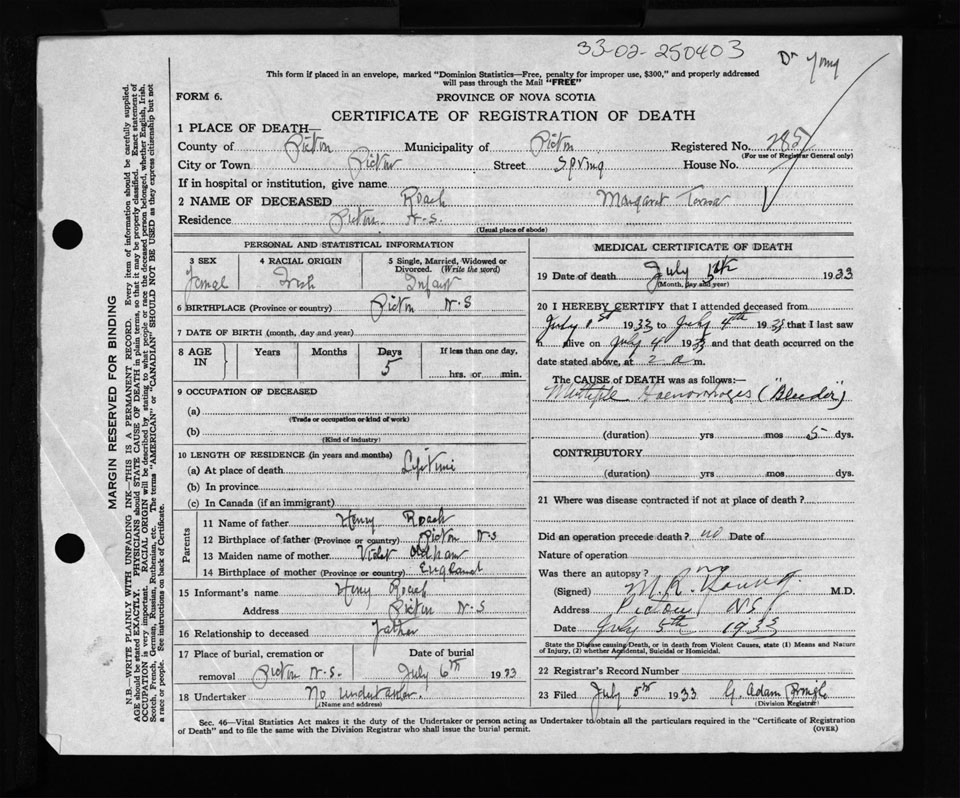 33-02-250403
Dr Young
This form if placed in an envelope, marked "Dominion Statistics—Free, penalty for improper use, $300," and properly addressed
will pass through the Mail "FREE"
FORM 6.
PROVINCE OF NOVA SCOTIA
CERTIFICATE OF REGISTRATION OF DEATH
1 PLACE OF DEATH—
County of Pictou Municipality of Pictou Registered No. 285
(For use of Registrar General only)
City or Town Pictou Street Spring House No.
If in hospital or institution, give name
2 NAME OF DECEASED Roach Margaret
Residence Pictou N.S.
(Usual place of abode)
PERSONAL AND STATISTICAL INFORMATION
3 SEX 4 RACIAL ORIGIN 5 Single, Married, Widowed or Divorced. (Write the word)
Femal Irish Infant
6 BIRTHPLACE (Province or country) Pictou N.S
7 DATE OF BIRTH (month, day and year)
8 AGE IN Years Months Days If less than one day,
5 hrs. or min.
9 OCCUPATION OF DECEASED
(a)
(Trade or occupation or kind of work)
(b)
(Kind of industry)
10 LENGTH OF RESIDENCE (in years and months)
(a) At place of death Lifetime
(b) In province
(c) In Canada (if an immigrant)
Parents
11 Name of father Henry Roach
12 Birthplace of father (Province or country) Pictou N-S
13 Maiden name of mother Violet
14 Birthplace of mother (Province or country) England
15 Informant's name Henry Roach
Address Pictou N-S
16 Relationship to deceased Father
17 Place of burial, cremation or removal Pictou N-S. Date of burial July 6th 1933
18 Undertaker No undertaker.
(Name and address)
MEDICAL CERTIFICATE OF DEATH
19 Date of death July 5th 1933
(Month, day and year)
20 I HEREBY CERTIFY that I attended deceased from
July 1st 1933 to July 4th 1933 that I last saw
h alive on July 4 1933 and that death occurred on the
date stated above, at 2 a m.
The CAUSE of DEATH was as follows:—
Multiple Haemorrhages ("Bleeder")
(duration) yrs mos 5 dys.
CONTRIBUTORY
(duration) yrs. mos. dys.
21 Where was disease contracted if not at place of death?
Did an operation precede death? no Date of
Nature of operation
Was there an autopsy? no
(Signed) M.R. Young M.D.
Address Pictou N.S.
Date July 5th 1933
State the Disease causing Death, or in death from Violent Causes, state (1) Means and Nature
of Injury, (2) whether Accidental, Suicidal or Homicidal.
22 Registrar's Record Number
23 Filed July 5th 1933 G. Adam
(Division Registrar)
Sec. 46—Vital Statistics Act makes it the duty of the Undertaker or person acting as Undertaker to obtain all the particulars required in the "Certificate of Registration
of Death" and to file the same with the Division Registrar who shall issue the burial permit.
(OVER)
MARGIN RESERVED FOR BINDING
N.B.—WRITE PLAINLY WITH UNFADING INK—THIS IS A PERMANENT RECORD. Every item of information should be carefully supplied.
AGE should be stated EXACTLY. PHYSICIANS should STATE CAUSE OF DEATH in plain terms, so that it may be properly classified. Exact statement of
OCCUPATION is very important. RACIAL ORIGIN will be described by stating to what people or race the deceased person belonged, whether English, Irish,
Scotch, French, German, Russian, Ruthenian, etc. The terms "AMERICAN" or "CANADIAN" SHOULD NOT BE USED as they express citizenship but not
a race or people. See instructions on back of Certificate.